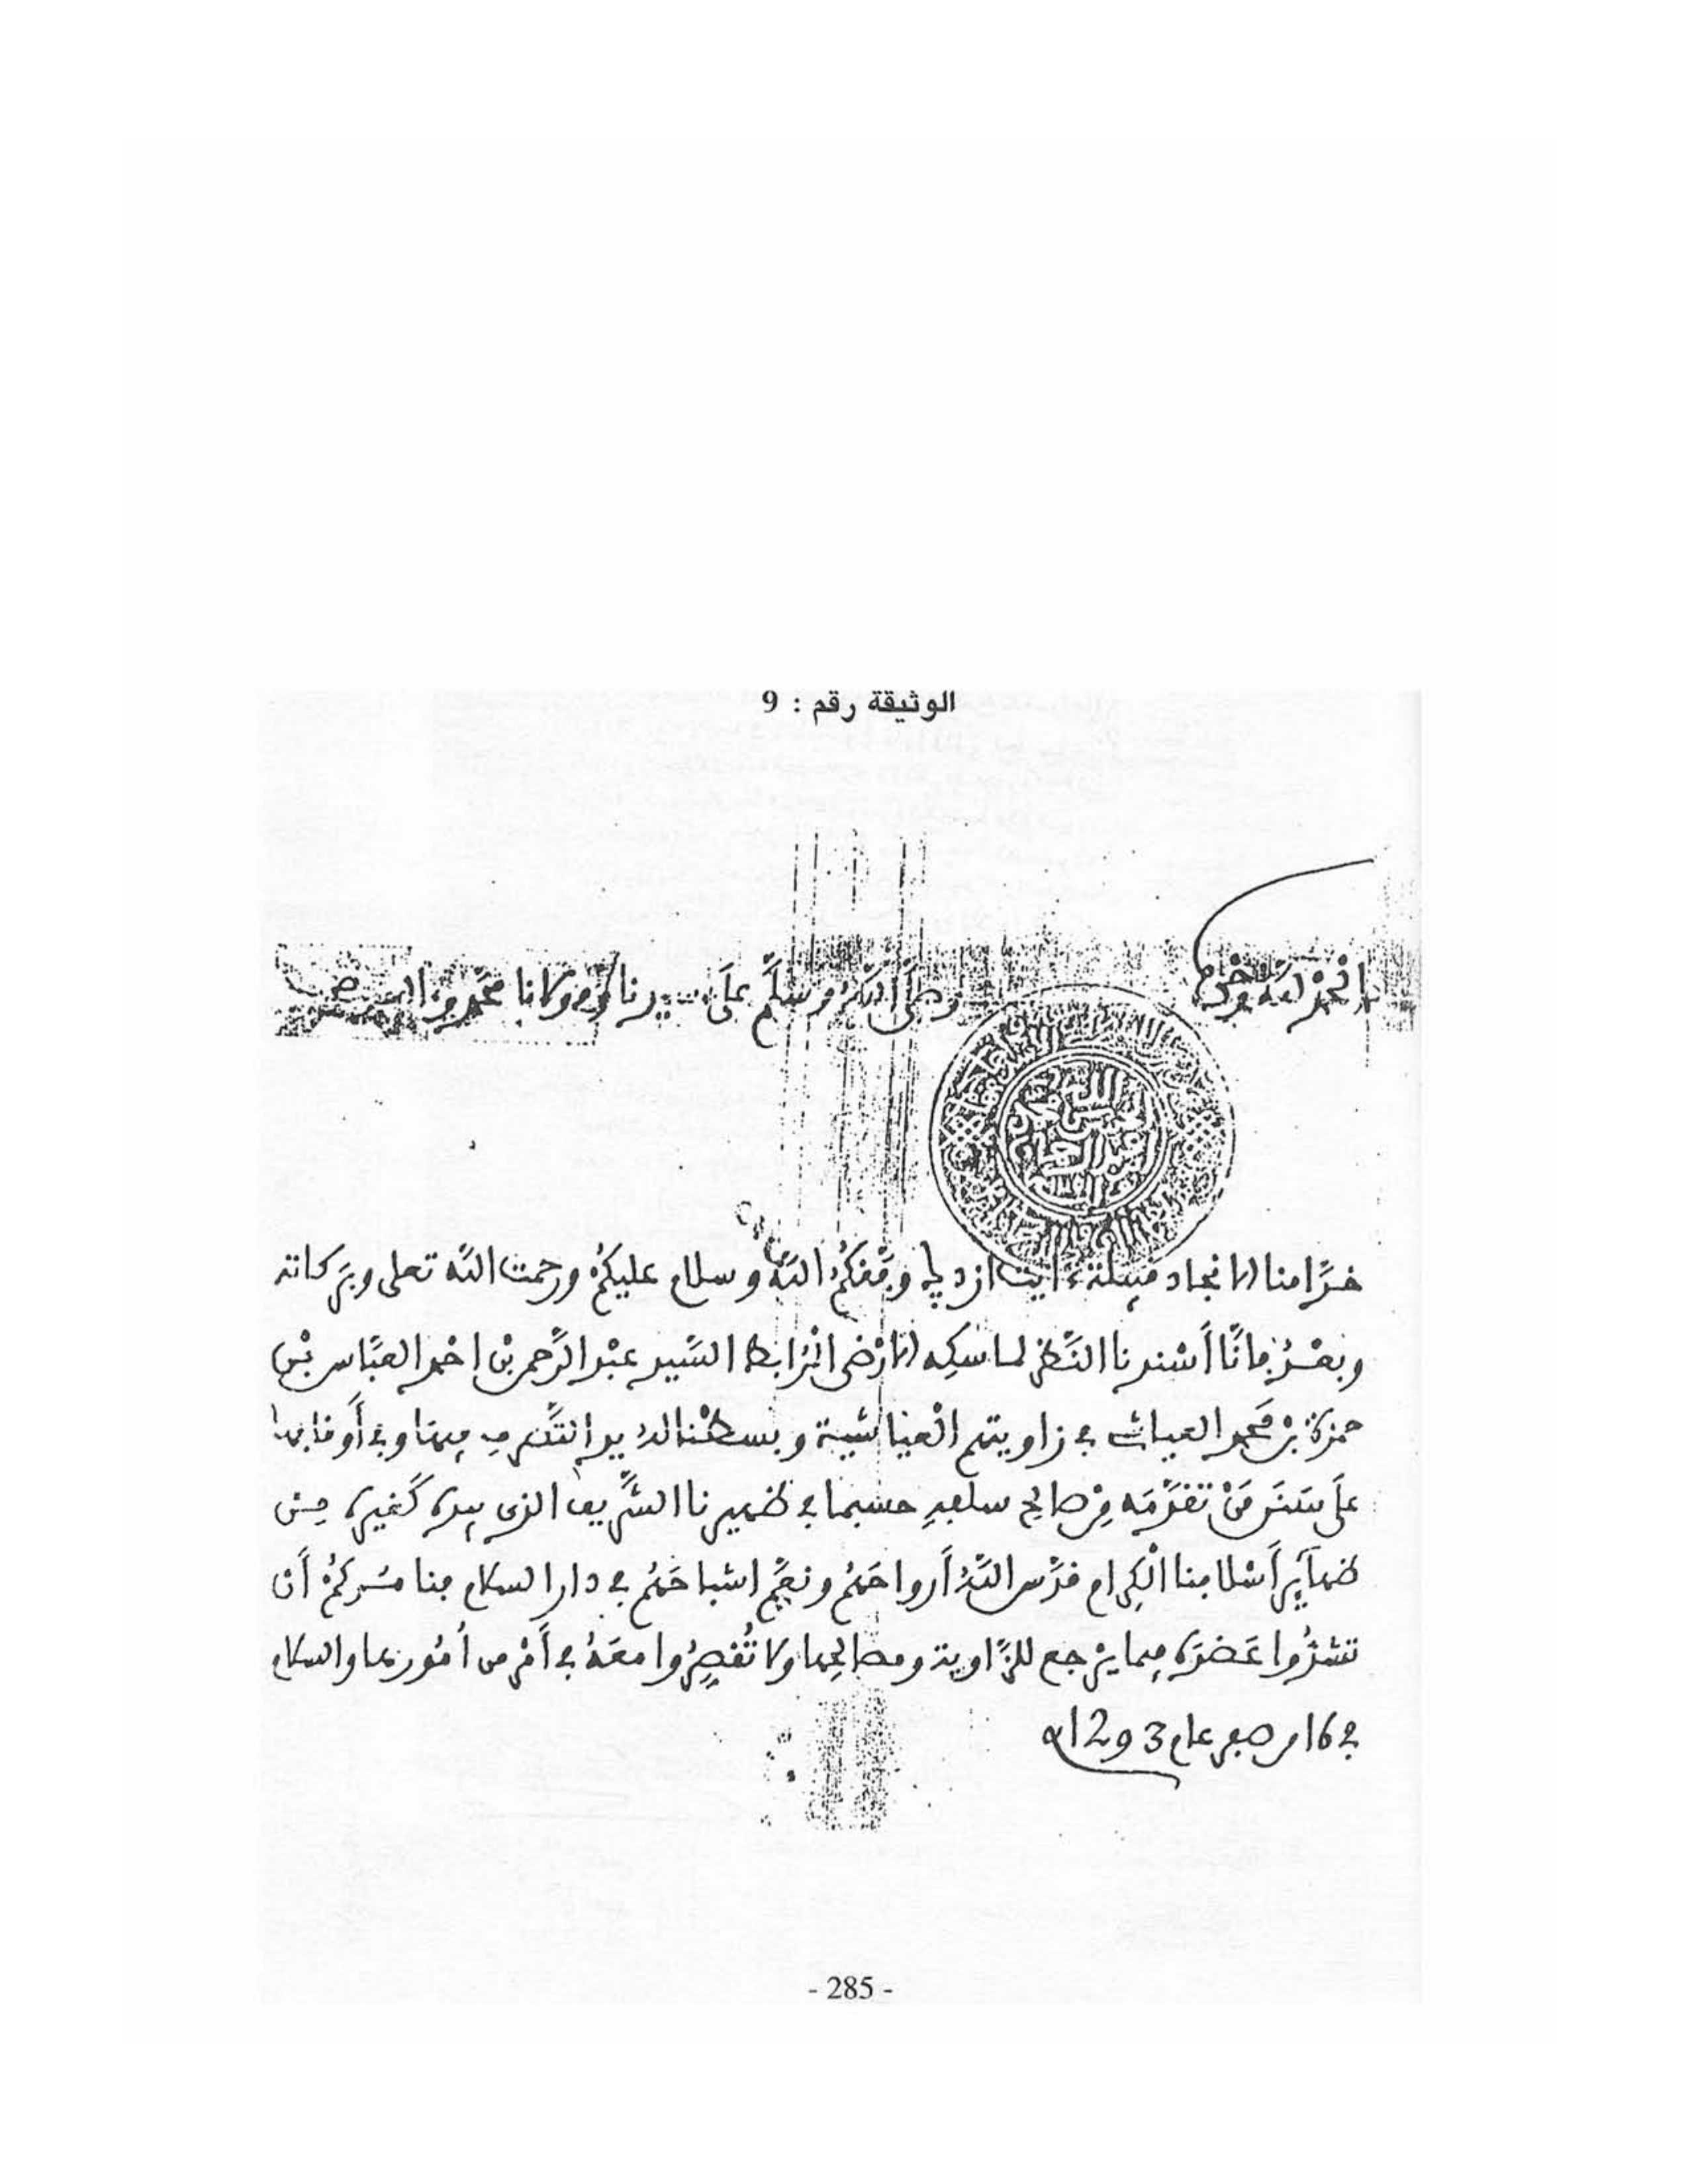 الوثيقة رقم : 9
الحمد لله وحده
وصلى الله وسلم على سيدنا ومولانا محمد وآله وصحبه
خدامنا الانجاد قبيلة ءايت ازدݣ وفقكم الله وسلام عليكم ورحمت الله تعلى وبركاته
وبعد فانا أسندنا النظر لماسكه الارضى المرابط السيد عبد الرحمن بن احمد العباس بن
حمزة بن محمد العياشي في زاويتهم العياشية وبسطنا له يد التصرف فيها وفي أوقافها
على سنن من تقدمه من صالح سلفه حسبما في ظهيرنا الشريف الذي بيده كغيره من
ظهآير أسلافنا الكرام قدس الله أرواحهم ونعم اشباحهم في دار السلام فنامركم أن
تشدوا عضده فيما يرجع للزاوية ومصالحها ولا تقصروا معه في أمر من أمورها والسلام
في 16 من صفر عام 1293
- 285 -